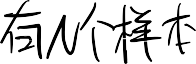 有N个样本